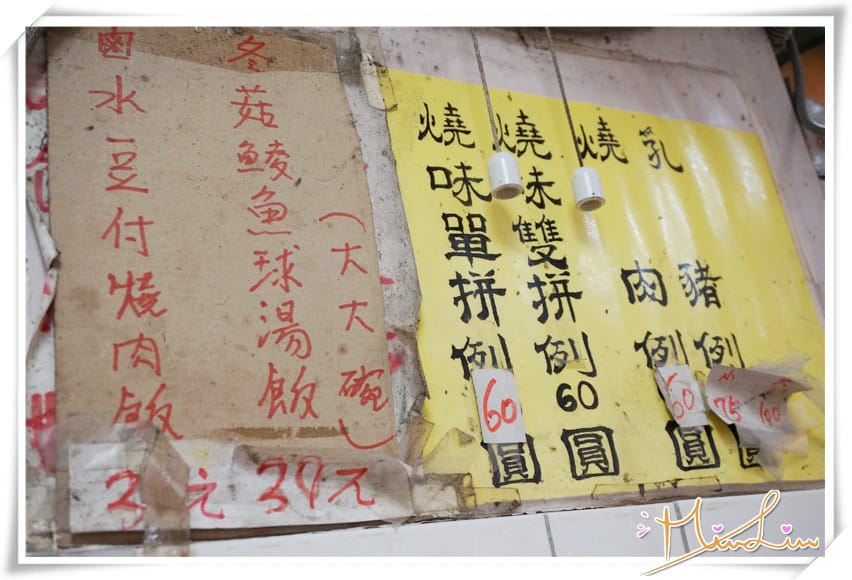 乳豬例 75 100
燒肉例60圓
燒味雙拼例60圓
燒味單拼例60圓
(大大碗)
冬菇鯪魚球湯飯 元
鹵水豆付燒肉飯 3 元
MinLin